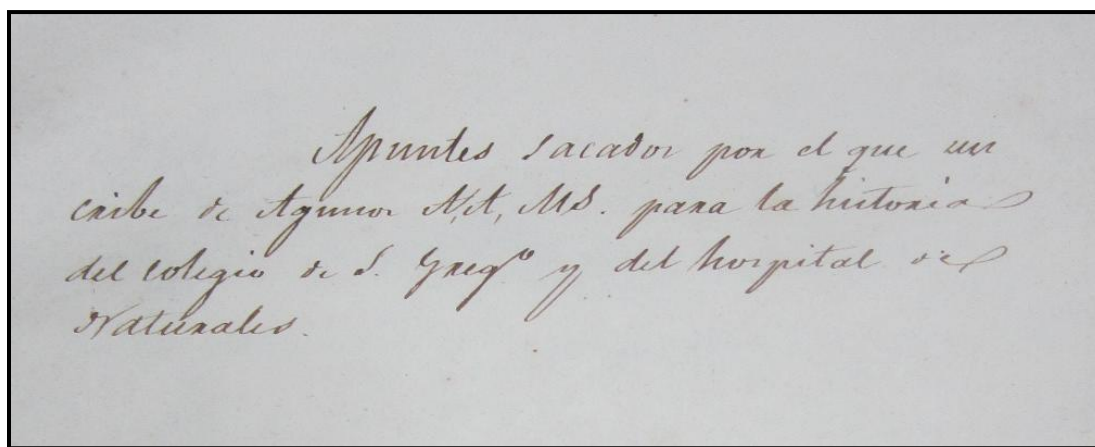 Apuntes sacados por el que sus
cribe de Agunos N,A, MS. para la historia
del colegio de S. Greg.º y del hospital de
Naturales.